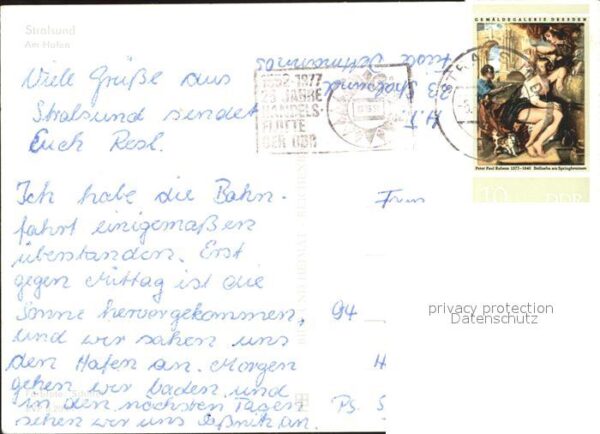 Stralsund
Am Hafen
Viele Grüße aus
Stralsund sendet
Euch Resl.
Ich habe die Bahn-
fahrt einigemaßen
überstanden. Erst
gegen Mittag ist die
Sonne hervorgekommen,
und wir sahen uns
den Hafen an. Morgen
gehen wir baden, und
in den nächsten Tagen
sehen wir uns an.
1952-1977
25 JAHRE
HANDELS-
FLOTTE
DER DDR
23 Stralsund
GEMÄLDEGALERIE DRESDEN
Peter Paul Rubens 1577-1640 Bathseba am Springbrunnen
10 DDR
94
H
Ps. S
BILD UND HEIMAT REICHENBACH
privacy protection
Datenschutz